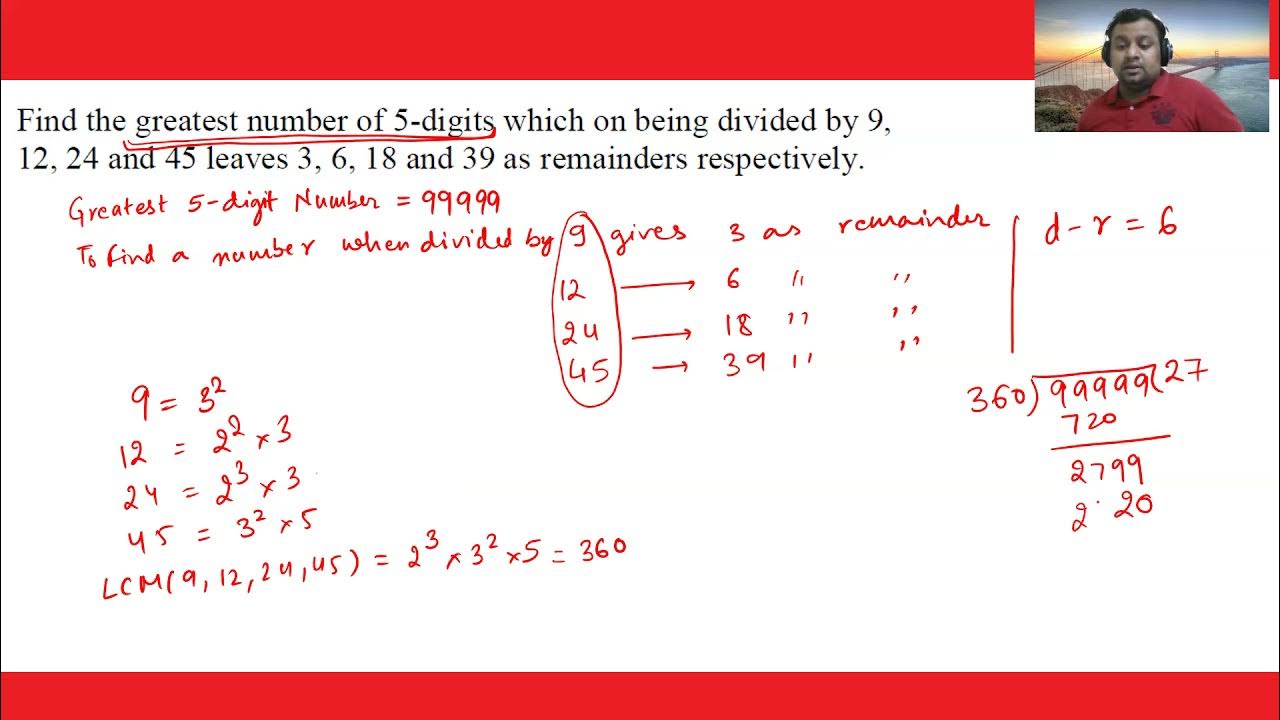 Find the greatest number of 5-digits which on being divided by 9,
12, 24 and 45 leaves 3, 6, 18 and 39 as remainders respectively.
Greatest 5-digit Number = 99999
To find a number when divided by 9 gives 3 as remainder
d-r = 6
12 → 6 " "
24 → 18 " "
45 → 39 " "
9 = 3²
12 = 2² × 3
24 = 2³ × 3
45 = 3² × 5
LCM(9, 12, 24, 45) = 2³ × 3² × 5 = 360
360) 99999 (27
720
2799
2 20